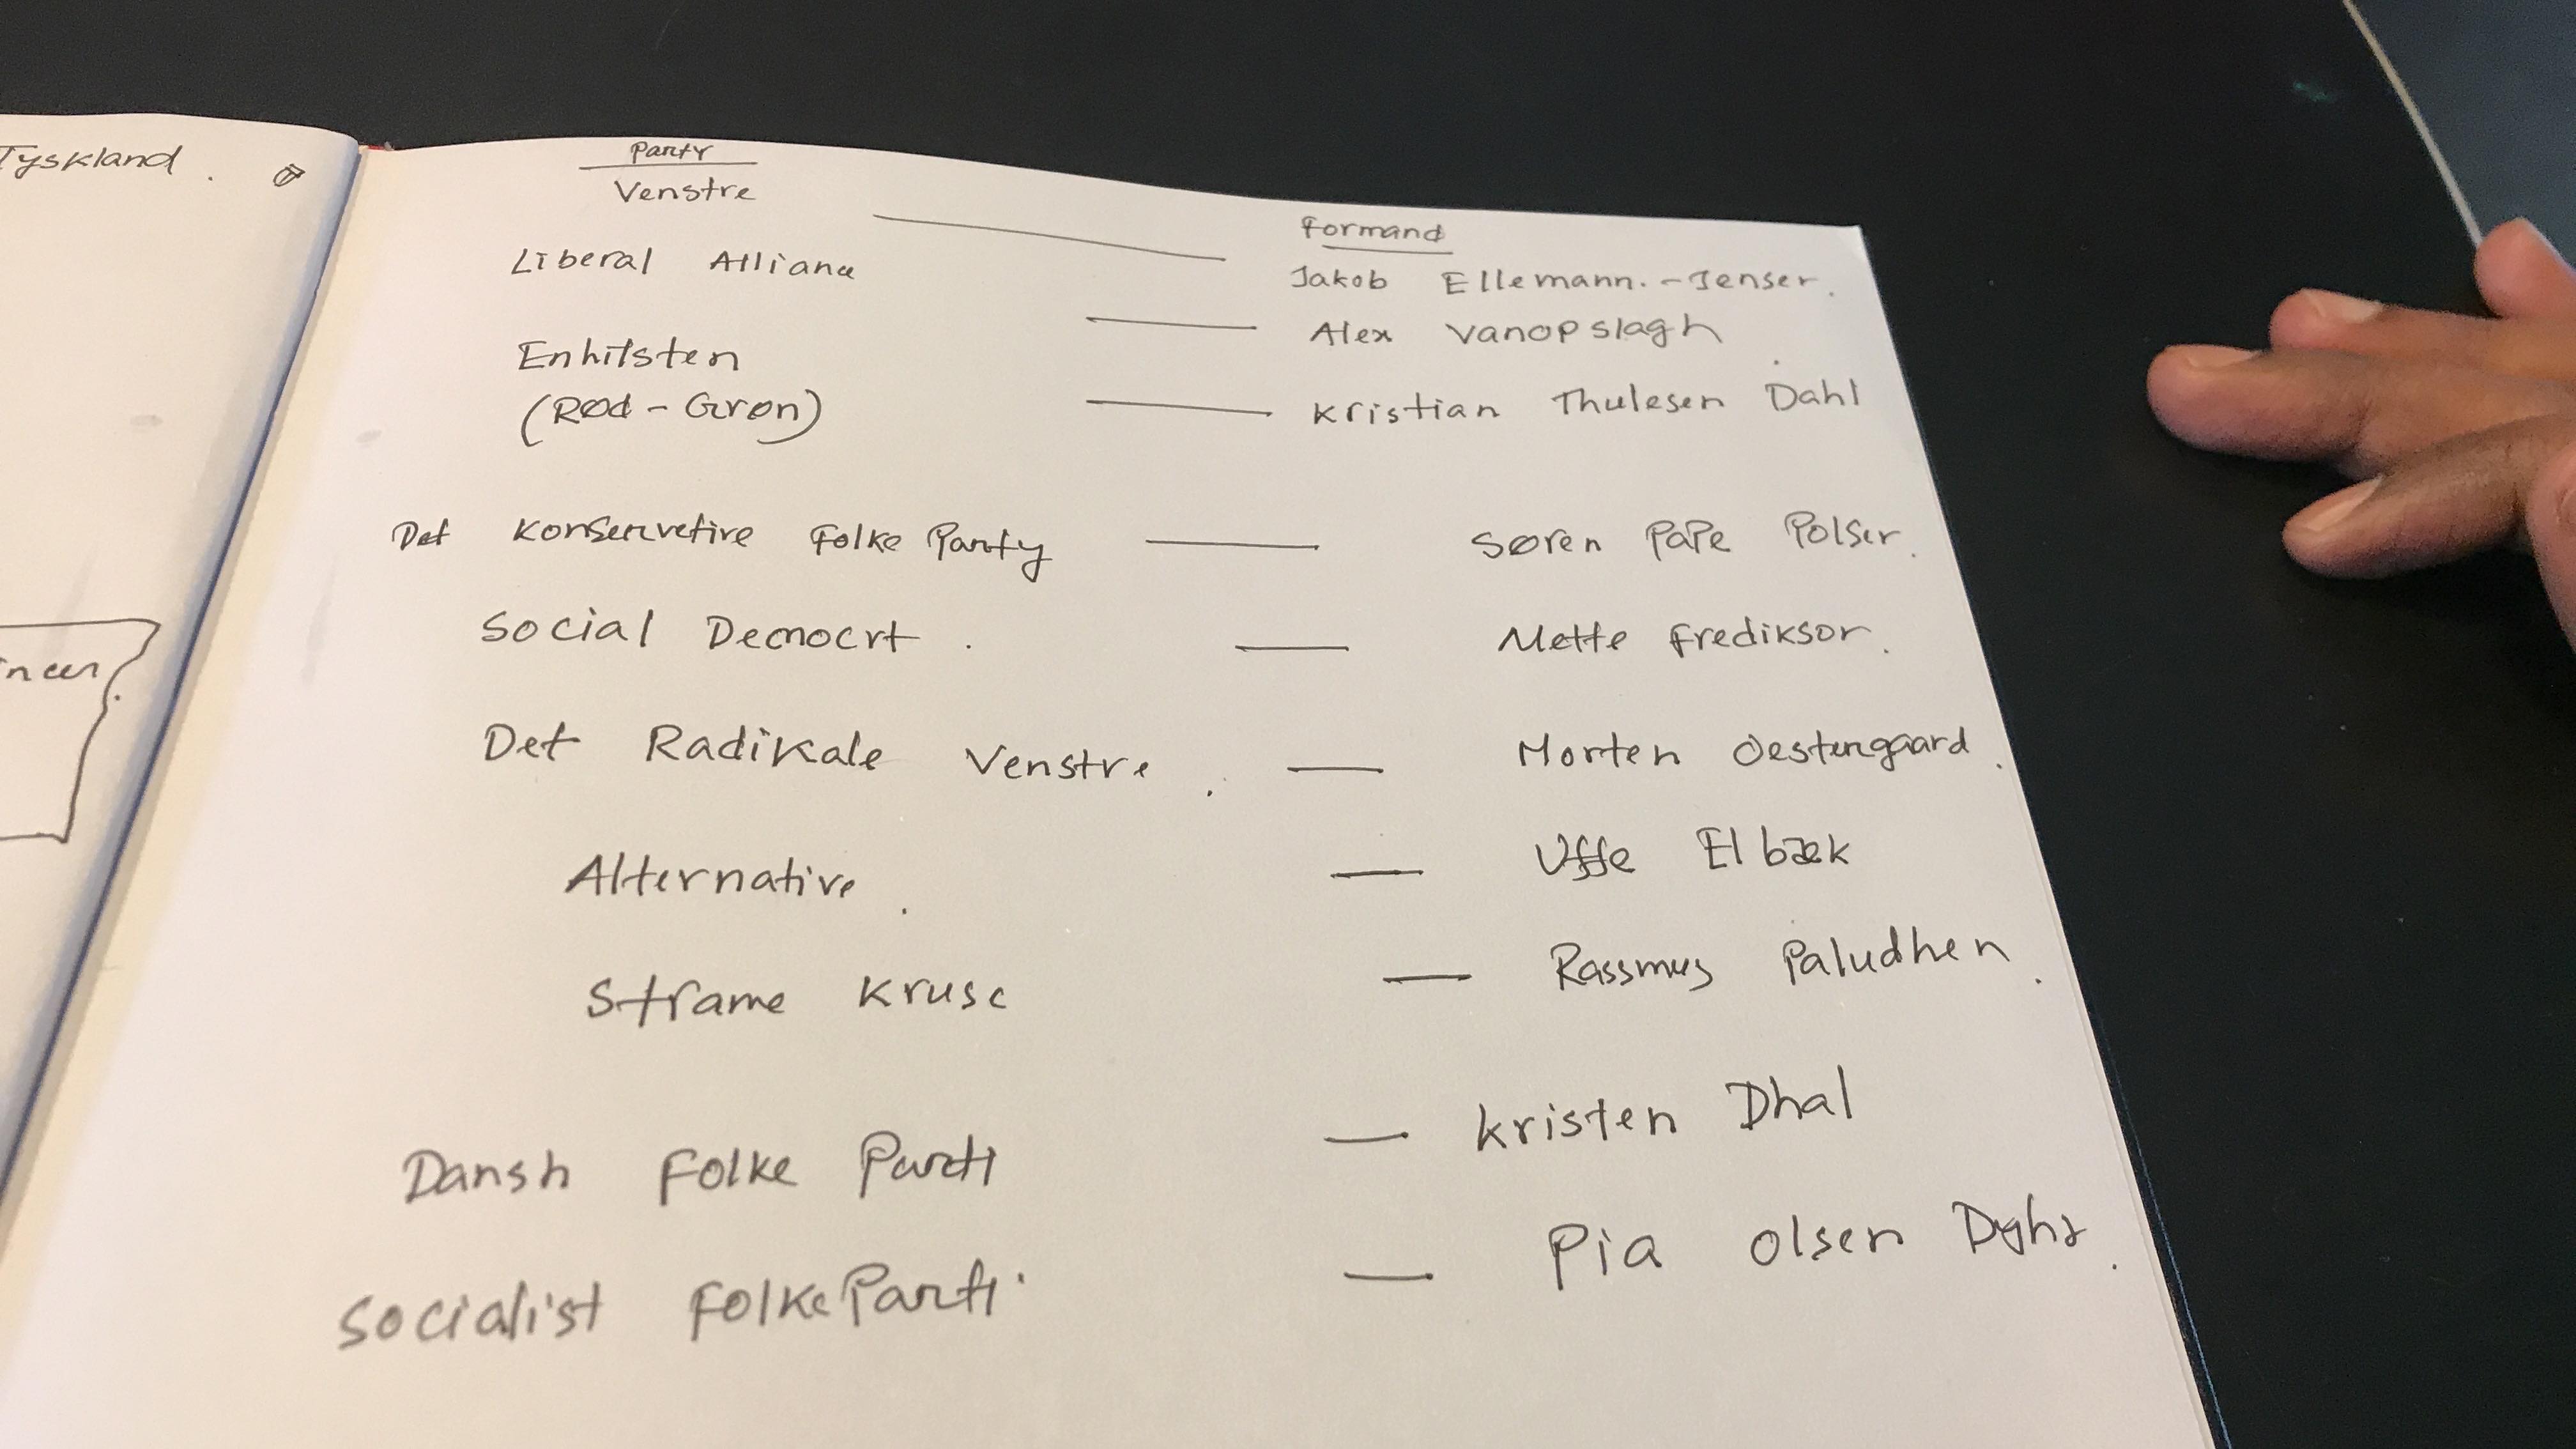 Tyskland.
neer
Party
Venstre
Formand
Liberal Alliance — Jakob Ellemann.-Jenser.
Enhitsten — Alex Vanopslagh
(Rød-Grøn) — Kristian Thulesen Dahl
Det Konservetive Folke Party — Søren Pape Polser.
Social Democrt. — Mette Frediksor.
Det Radikale Venstre. — Morten Oestergaard.
Alternative. — Uffe Elbæk
Strame Kruse — Rassmus Paludhen.
Dansh Folke Parti — Kristen Dhal
Socialist FolkeParti — Pia Olsen